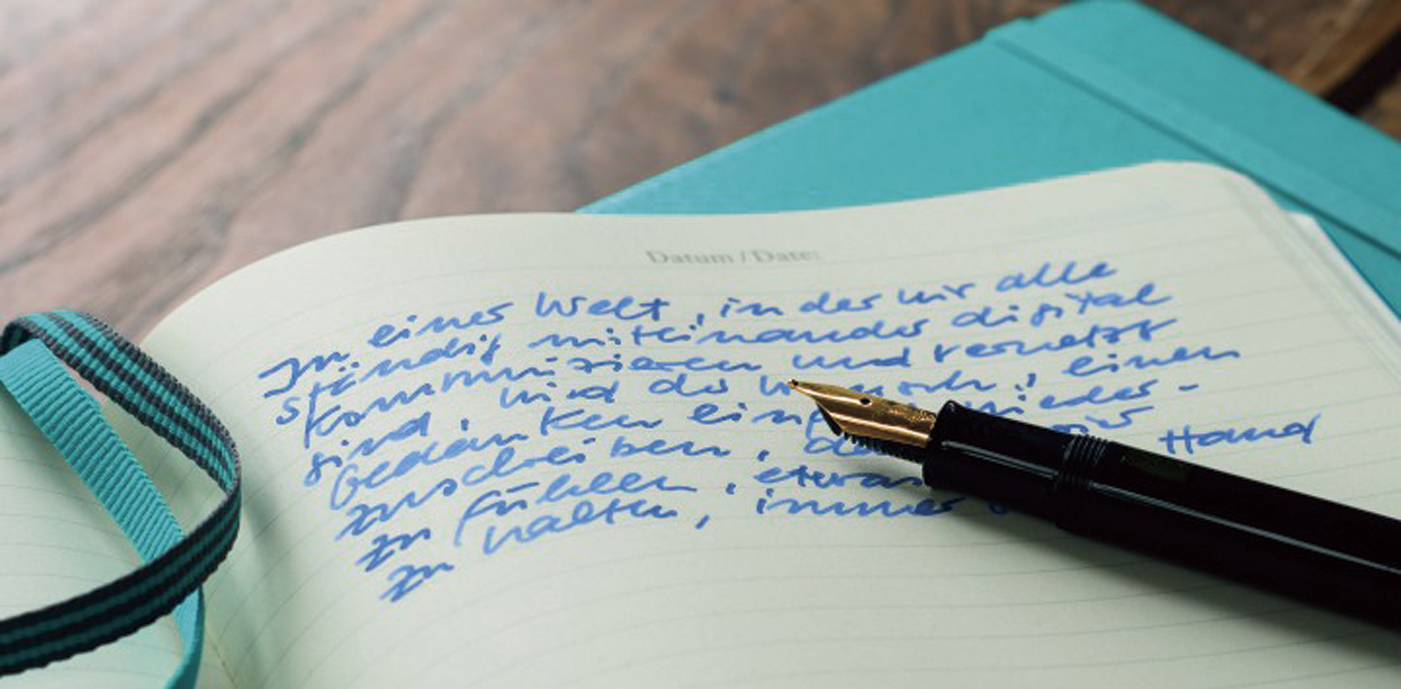 Datum / Date:
In einer Welt, in der wir alle
ständig miteinander digital
kommunizieren und vernetzt
sind, wird der Wunsch, einen
Gedanken einf nieder-
zuschreiben,
zu fühlen, etwas Hand
zu halten, immer